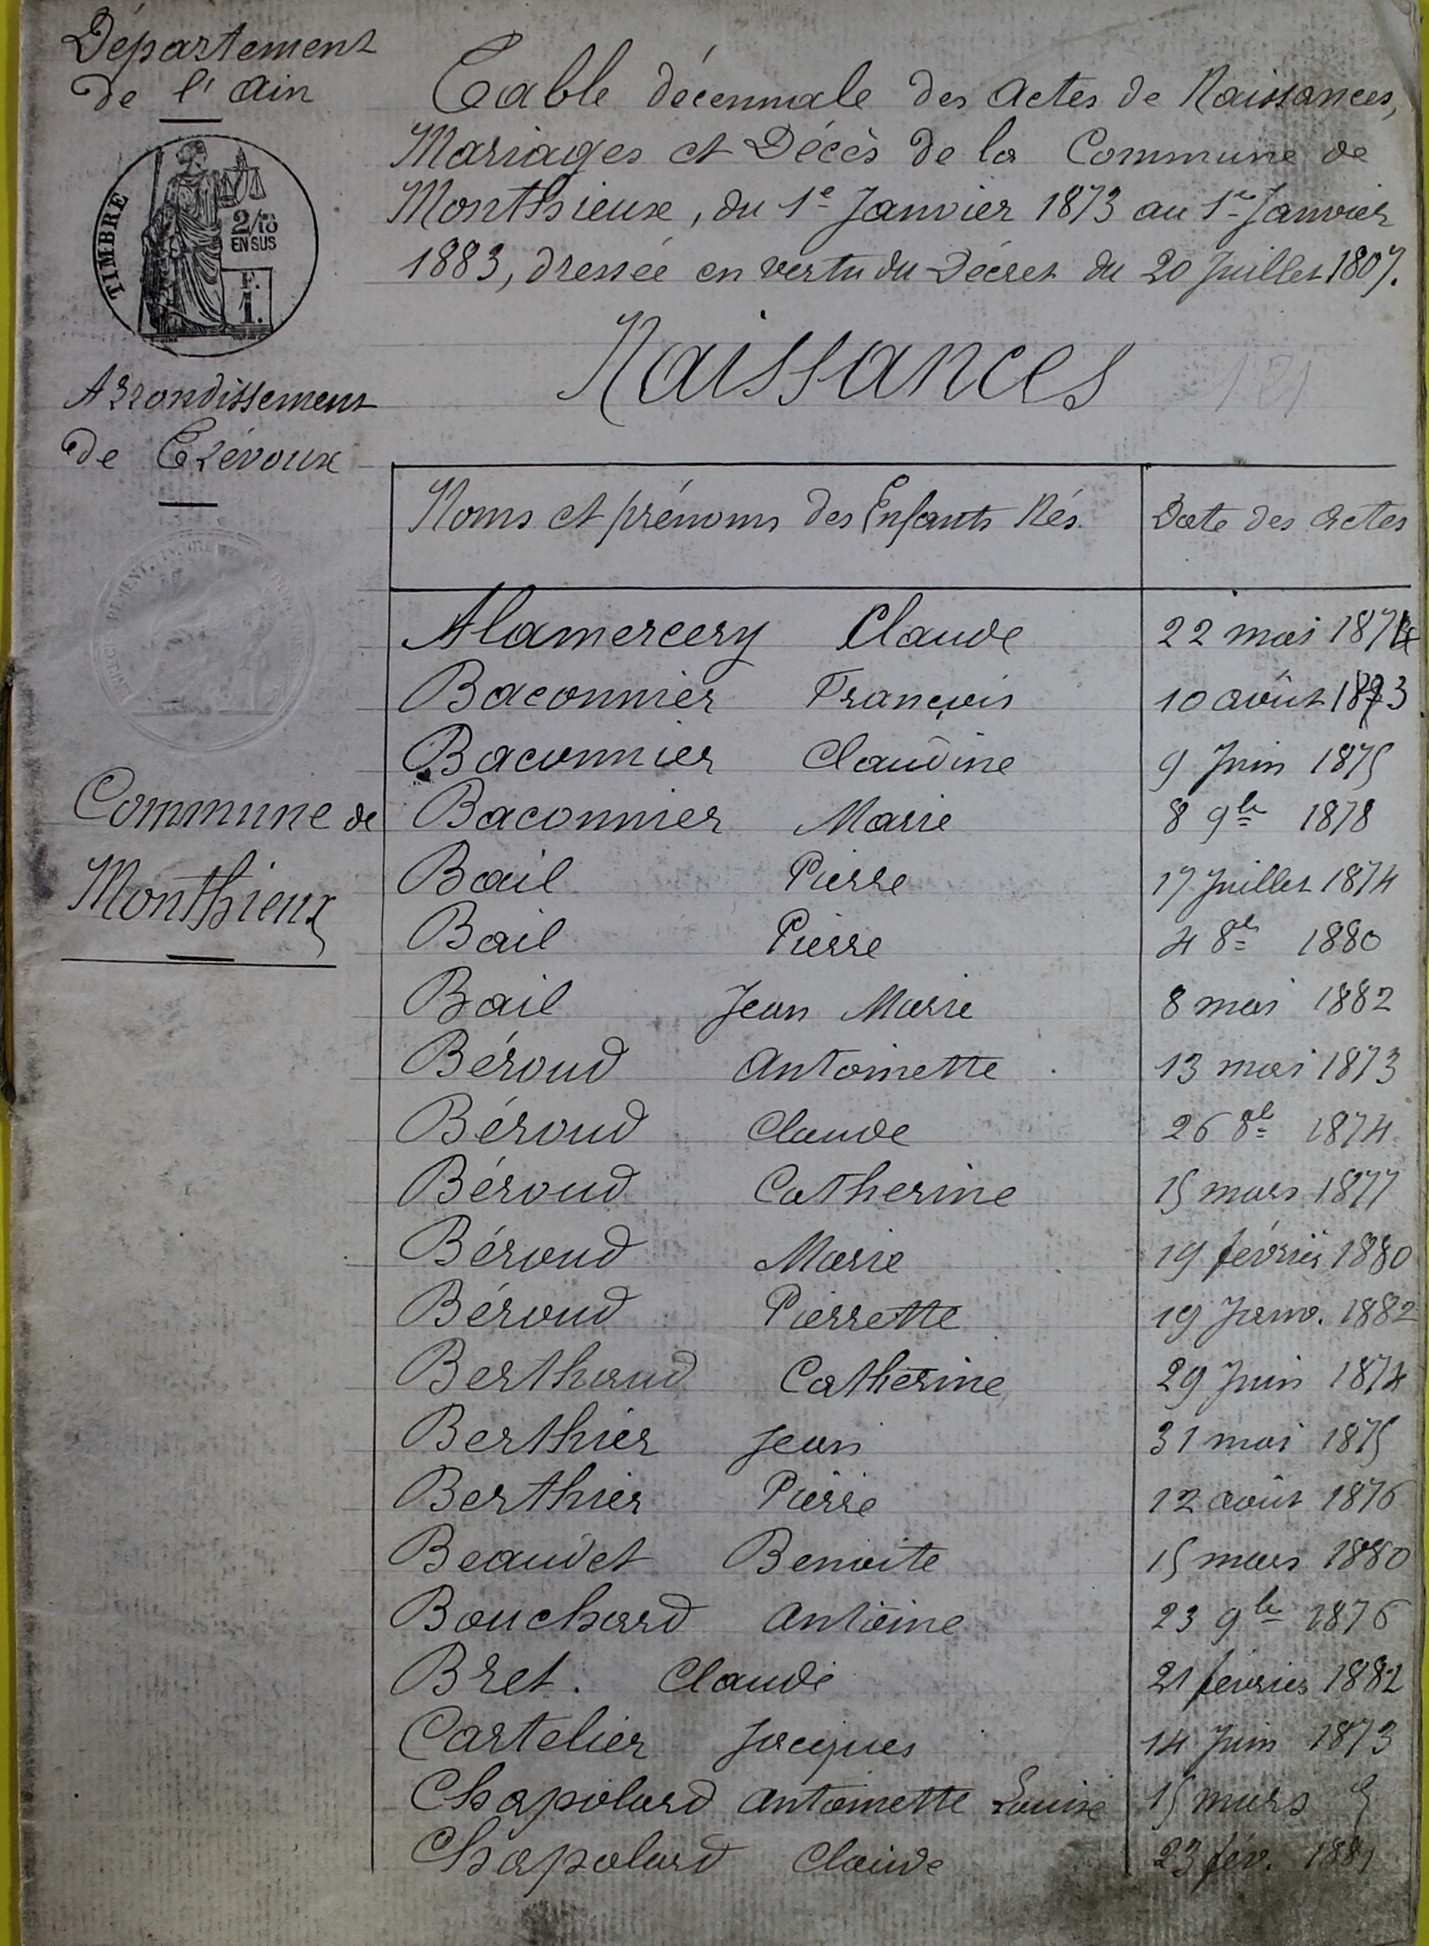 Département
de l'Ain
TIMBRE
2/10
EN SUS
F.
1.
Arrondissement
de Trévoux
Commune de
Monthieux
Table décennale des Actes de Naissances,
Mariages et Décès de la Commune de
Monthieux, du 1e Janvier 1873 au 1er Janvier
1883, dressée en vertu du Décret du 20 Juillet 1807.
Naissances
Noms et prénoms des Enfants Nés Date des Actes
Alamercery Claude 22 mai 1874
Baconnier François 10 août 1873
Baconnier Claudine 9 Juin 1875
Baconnier Marie 8 9bre 1878
Bail Pierre 17 Juillet 1874
Bail Pierre 4 8bre 1880
Bail Jean Marie 8 mai 1882
Béroud Antoinette 13 mai 1873
Béroud Claude 26 8bre 1874
Béroud Catherine 15 mars 1877
Béroud Marie 19 février 1880
Béroud Pierrette 19 Janv. 1882
Berthaud Catherine 29 Juin 1874
Berthier Jean 31 mai 1875
Berthier Pierre 12 août 1876
Beaudet Benoite 15 mars 1880
Bouchard Antoine 23 9bre 1876
Bret. Claude 21 février 1882
Cartelier Jacques 14 Juin 1873
Chapolard Antoinette Louise 15 mars
Chapolard Claude 23 fév. 1881